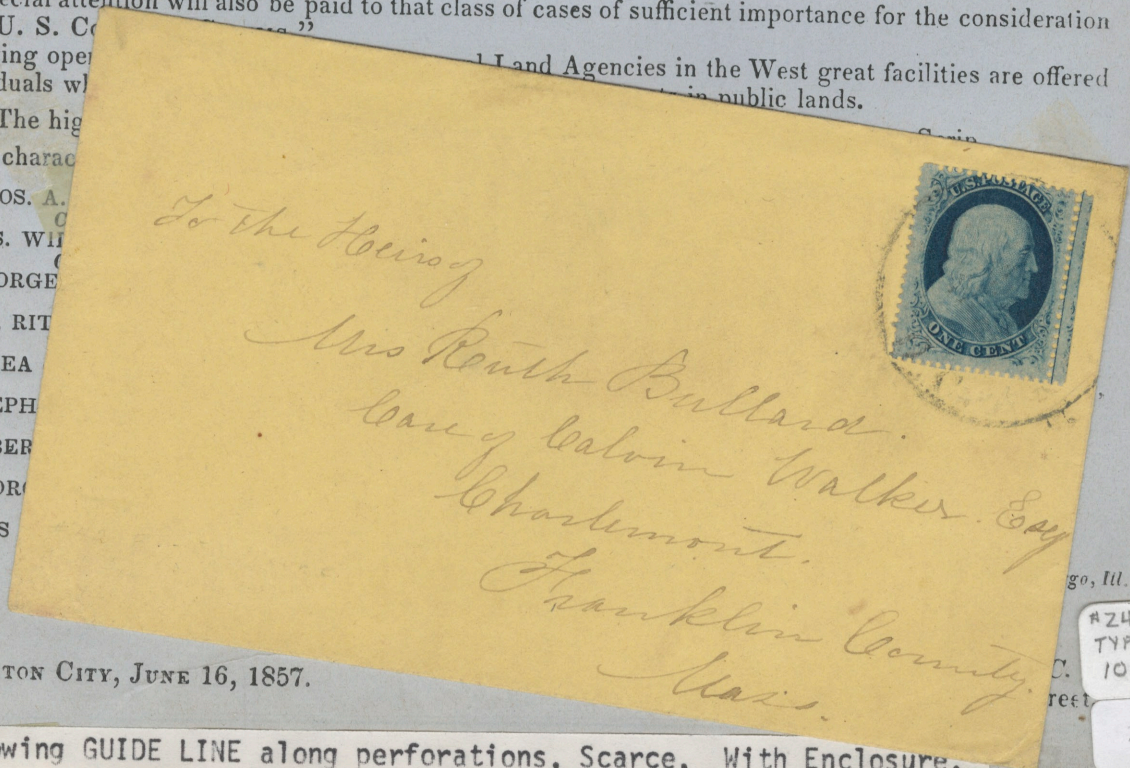 ecial attention will also be paid to that class of cases of sufficient importance for the consideration
U. S. Co
ing oper
l Land Agencies in the West great facilities are offered
duals wh
in public lands.
The hig
Scrip
charac
OS. A.
C
S. WIL
C
ORGE
RIT
EA
EPH
BER
ORG
S
U.S. POSTAGE
ONE CENT
To the Heirs of
Mrs Ruth Bullard.
Care of Calvin Walker. Esq
Charlemont.
Franklin County.
Mass.
go, Ill.
C.
reet
TON CITY, JUNE 16, 1857.
#24
TYP
10
wing GUIDE LINE along perforations. Scarce. With Enclosure.